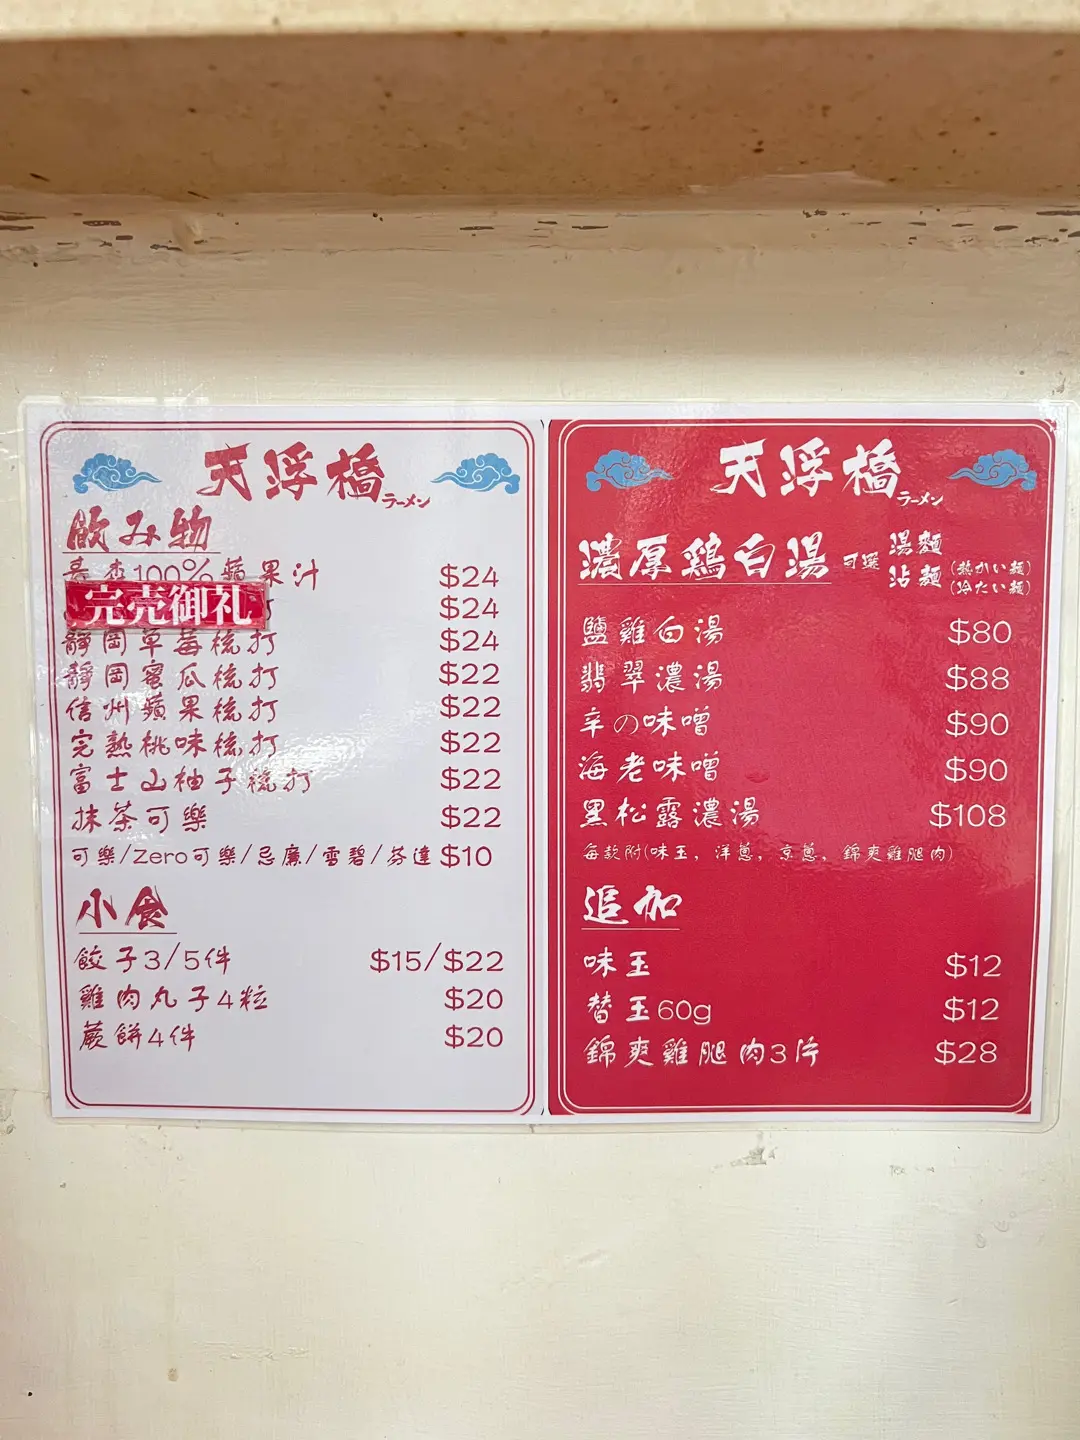 天浮橋
ラーメン
飲み物
青森100%蘋果汁 $24
完売御礼 $24
靜岡草莓梳打 $24
靜岡蜜瓜梳打 $22
信州蘋果梳打 $22
完熟桃味梳打 $22
富士山柚子梳打 $22
抹茶可樂 $22
可樂/Zero可樂/忌廉/雪碧/芬達 $10
小食
餃子3/5件 $15/$22
雞肉丸子4粒 $20
蕨餅4件 $20
天浮橋
ラーメン
濃厚鶏白湯 可選 湯麵
沾麵 (熱かい麵)
(冷たい麵)
鹽雞白湯 $80
翡翠濃湯 $88
辛の味噌 $90
海老味噌 $90
黑松露濃湯 $108
每款附(味玉, 洋蔥, 京蔥, 錦爽雞腿肉)
追加
味玉 $12
替玉60g $12
錦爽雞腿肉3片 $28